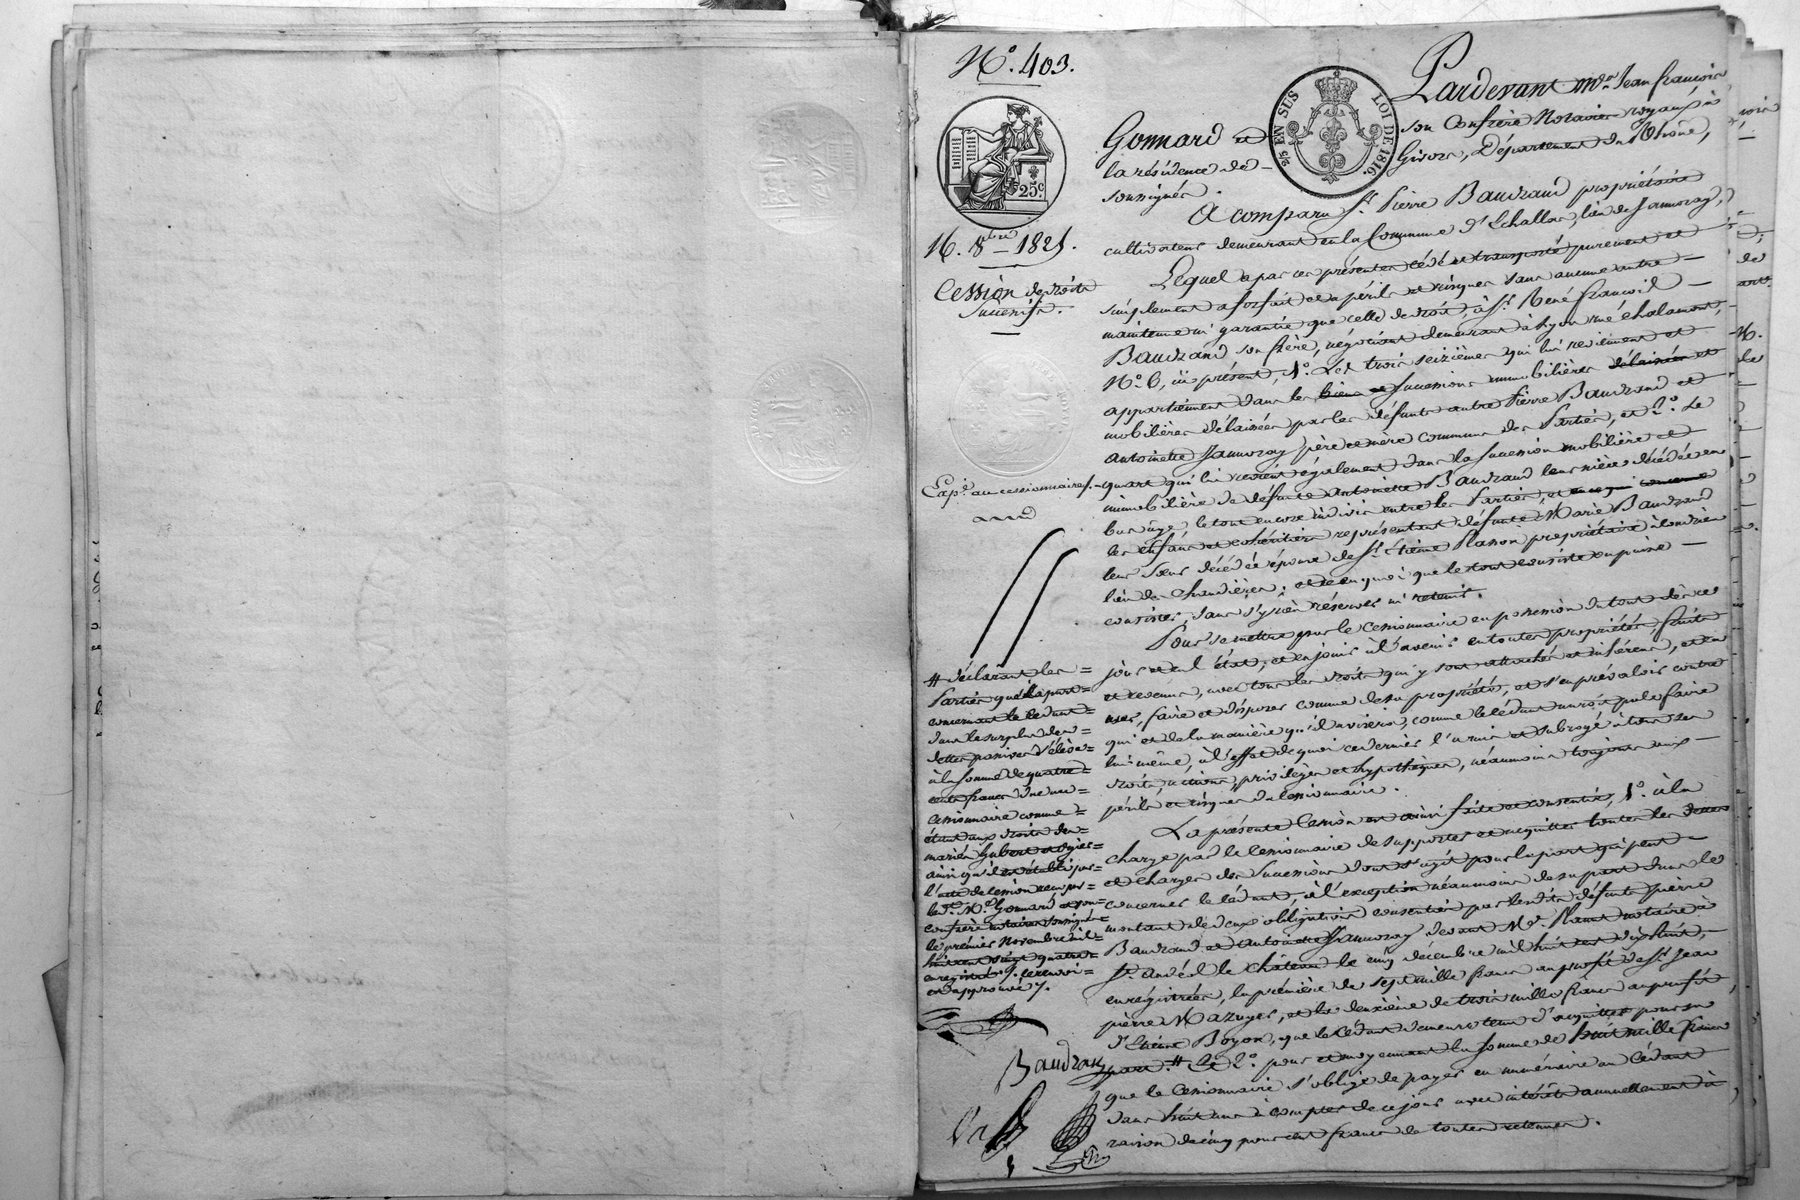 N.° 403.
Pardevant M.e Jean françois
Gonnard et son Confrère Notaires royaux à
la résidence de Givors, Département du Rhône,
soussignés.
2/5 EN SUS LOI DE 1816.
25c
16. 8bre 1825.
Cession de droits
Successifs.
A comparu S.r Pierre Baudrand propriétaire
cultivateur demeurant en la Commune d'Echallas, lieu de
Lequel a par ces présentes cédé et transporté purement et
simplement a forfait et a périls et risques sans aucune autre
maintenue ni garantie que celle de droit, à S.r René françois
Baudrand son frère, négociant demeurant à Lyon rue chalamont,
N.° 6, ici présent, 1.° Les trois seizièmes qui lui reviennent et
appartiennent dans les successions immobilières et
mobilières délaissées par les défunts autre Pierre Baudrand et
antoinette père et mère communs des Parties, et 2.° Le
Exp.é au cessionnaire
quart qui lui revient également dans la succession mobilière et
immobilière de défunte antoinette Baudrand leur nièce décédée en
bas âge, le tout encore indivis entre les Parties, et
les enfans et cohéritiers représentant défunte Marie Baudrand
leur sœur décédée épouse de S.r Etienne propriétaire à
lieu de ; et en quoi que le tout consiste ou puisse
consister, sans s'y rien réserver ni retenir.
Pour se mettre par le cessionnaire en possession du tout dès ce
jour et en l'état, et en jouir à l'avenir en toutes propriétés, fruits
et revenus, avec tous les droits qui y sont attachés et inhérens, et en
user, faire et disposer comme de sa propriété, et s'en prévaloir contre
qui et de la manière qu'il avisera, comme le cédant auroit pu le faire
lui même, à l'effet de quoi ce dernier l'a mis et subrogé à tous ses
droits, actions, privilèges et hypothèques, néanmoins toujours aux
périls et risques du cessionnaire.
La présente cession est ainsi faite et consentie, 1.° à la
charge par le cessionnaire de supporter et acquitter toutes les dettes
et charges des successions dont s'agit pour la part qui peut
concerner le cédant, à l'exception néanmoins de sa part dans le
montant de deux obligations consenties par lesdits défunts pierre
Baudrand et antoinette devant M.e notaire à
S.t andéol le château le cinq décembre mil huit cent dix sept,
enregistrées, la première de sept mille francs au profit de S.r Jean
pierre Mazuyer, et la deuxième de trois mille francs au profit
d'Etienne Boyon, que le cédant demeure tenu d'acquitter pour sa
part. # Et 2.° pour et moyennant la somme de huit mille francs
que le cessionnaire s'oblige de payer en numéraire au cédant
dans huit ans à compter de ce jour avec intérêts annuellement à
raison de cinq pour cent francs de toutes retenues.
# déclarant les
Parties que la part
concernant le cédant
dans le surplus des
dettes passives s'élève
à la somme de quatre
cents francs due au
cessionnaire comme
étant aux droits des
mariés hubert et ogier
ainsi qu'il est établi par
l'acte de cession reçu par
led. M.e Gonnard et son
confrère notaires soussignés
le premier Novembre mil
huit cent vingt quatre
enregistré. le renvoi
est approuvé.
Baudran